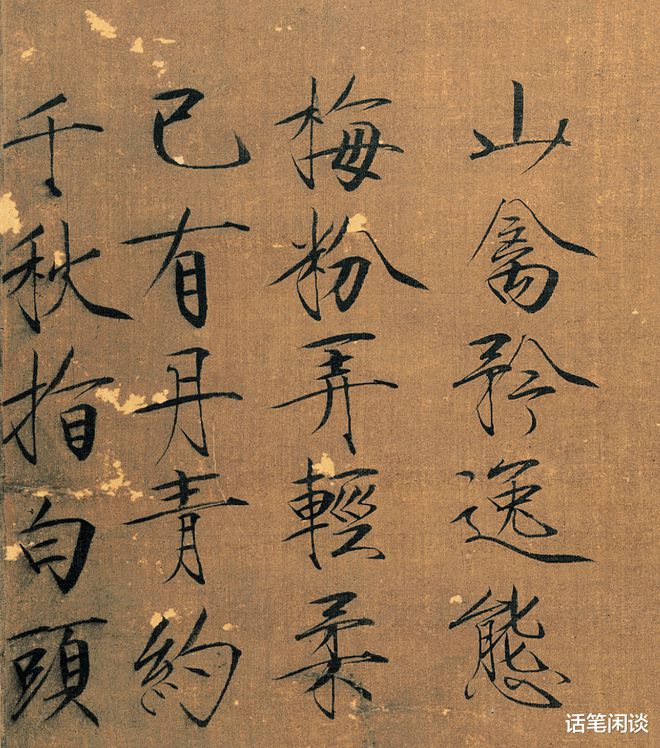 山禽矜逸態
梅粉弄輕柔
已有丹青約
千秋指白頭
话笔闲谈